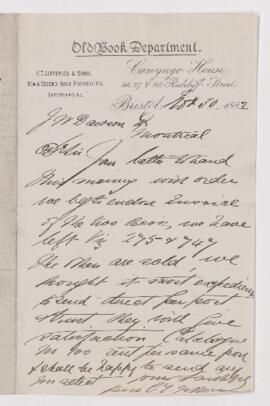 Old Book Department.
C. T. Jefferies & Sons,
New & Second-Hand Booksellers,
Exporters &c.
Canynge House,
Redcliffe Street,
Bristol, Nov 30 1882
J W Dawson
Montreal
D Sir Your letter to hand
this morning with order
we beg to enclose Invoice
of the two Books, we have
left viz 275 & 747
the others are sold, we
thought it most expedient
to send direct per post
& trust they will give
satisfaction Catalogue
No 100 sent per same post
& shall be happy to send any
you select